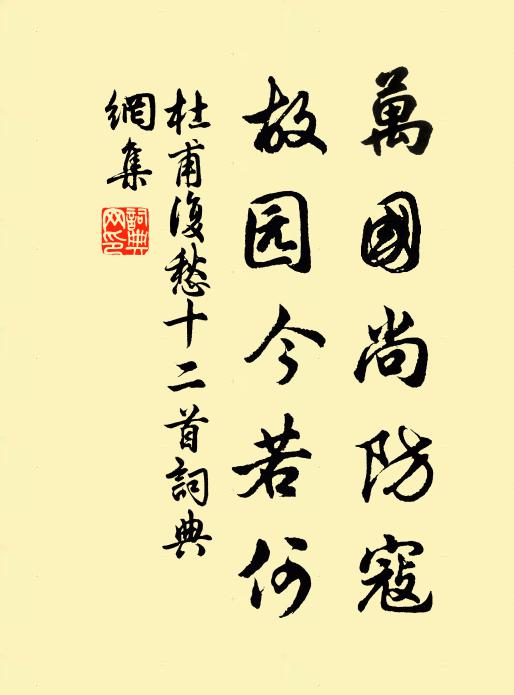 萬國尚防寇
故园今若何
杜甫復愁十二首詞典
網集
詞典
网印